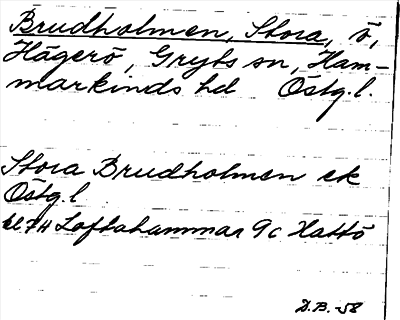 Brudholmen, Stora, ö,
Hägerö, Gryts sn, Ham-
markinds hd Östg.l.
Stora Brudholmen ek
Östg.l
bl.7H Loftahammar 9c Hattö
D.B. -58